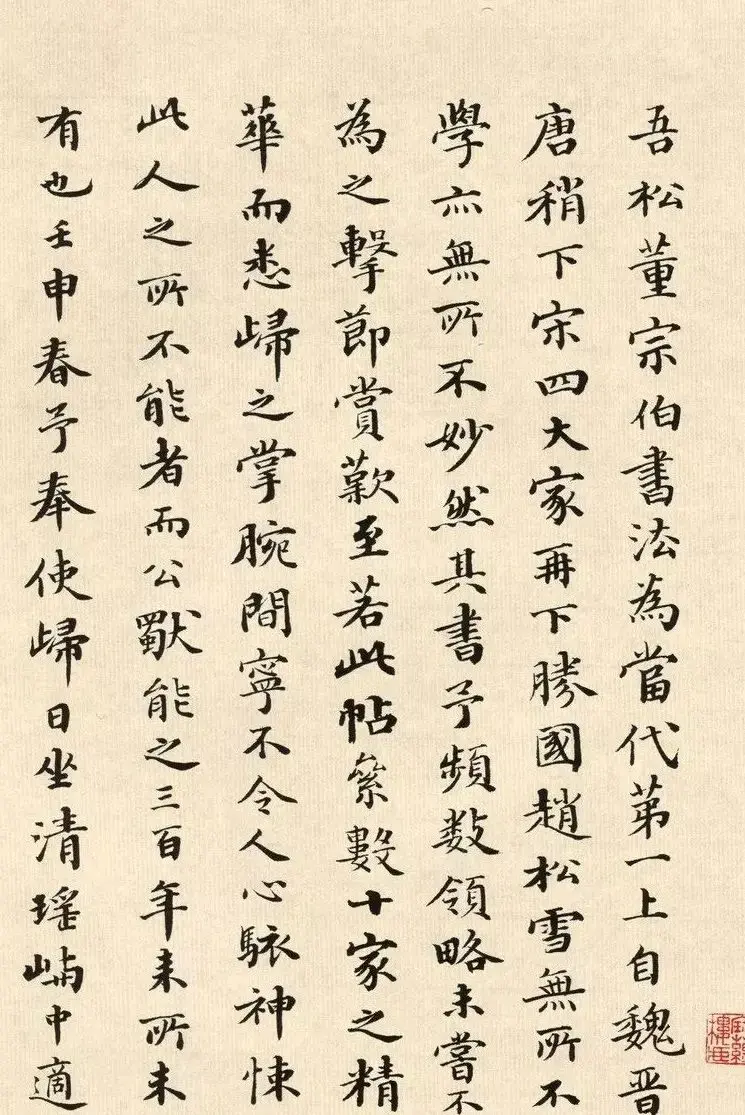 吾松董宗伯書法為當代第一上自魏晉
唐稍下宋四大家再下勝國趙松雪無所不
學亦無所不妙然其書予頻数領略未嘗不
為之擊節賞歎至若此帖彙數十家之精
華而悉歸之掌腕間寧不令人心駭神悚
此人之所不能者而公獸能之三百年来所未
有也壬申春予奉使歸日坐清瑤嶼中適